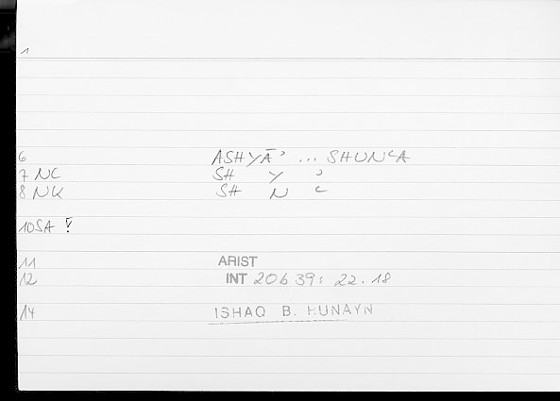 1
6 ASHYĀʾ ... SHUNʿA
7 NC SH Y ʾ
8 NK SH N ʿ
10 SA
11 ARIST
12 INT 20b 39: 22.18
14 ISHAQ B. HUNAYN